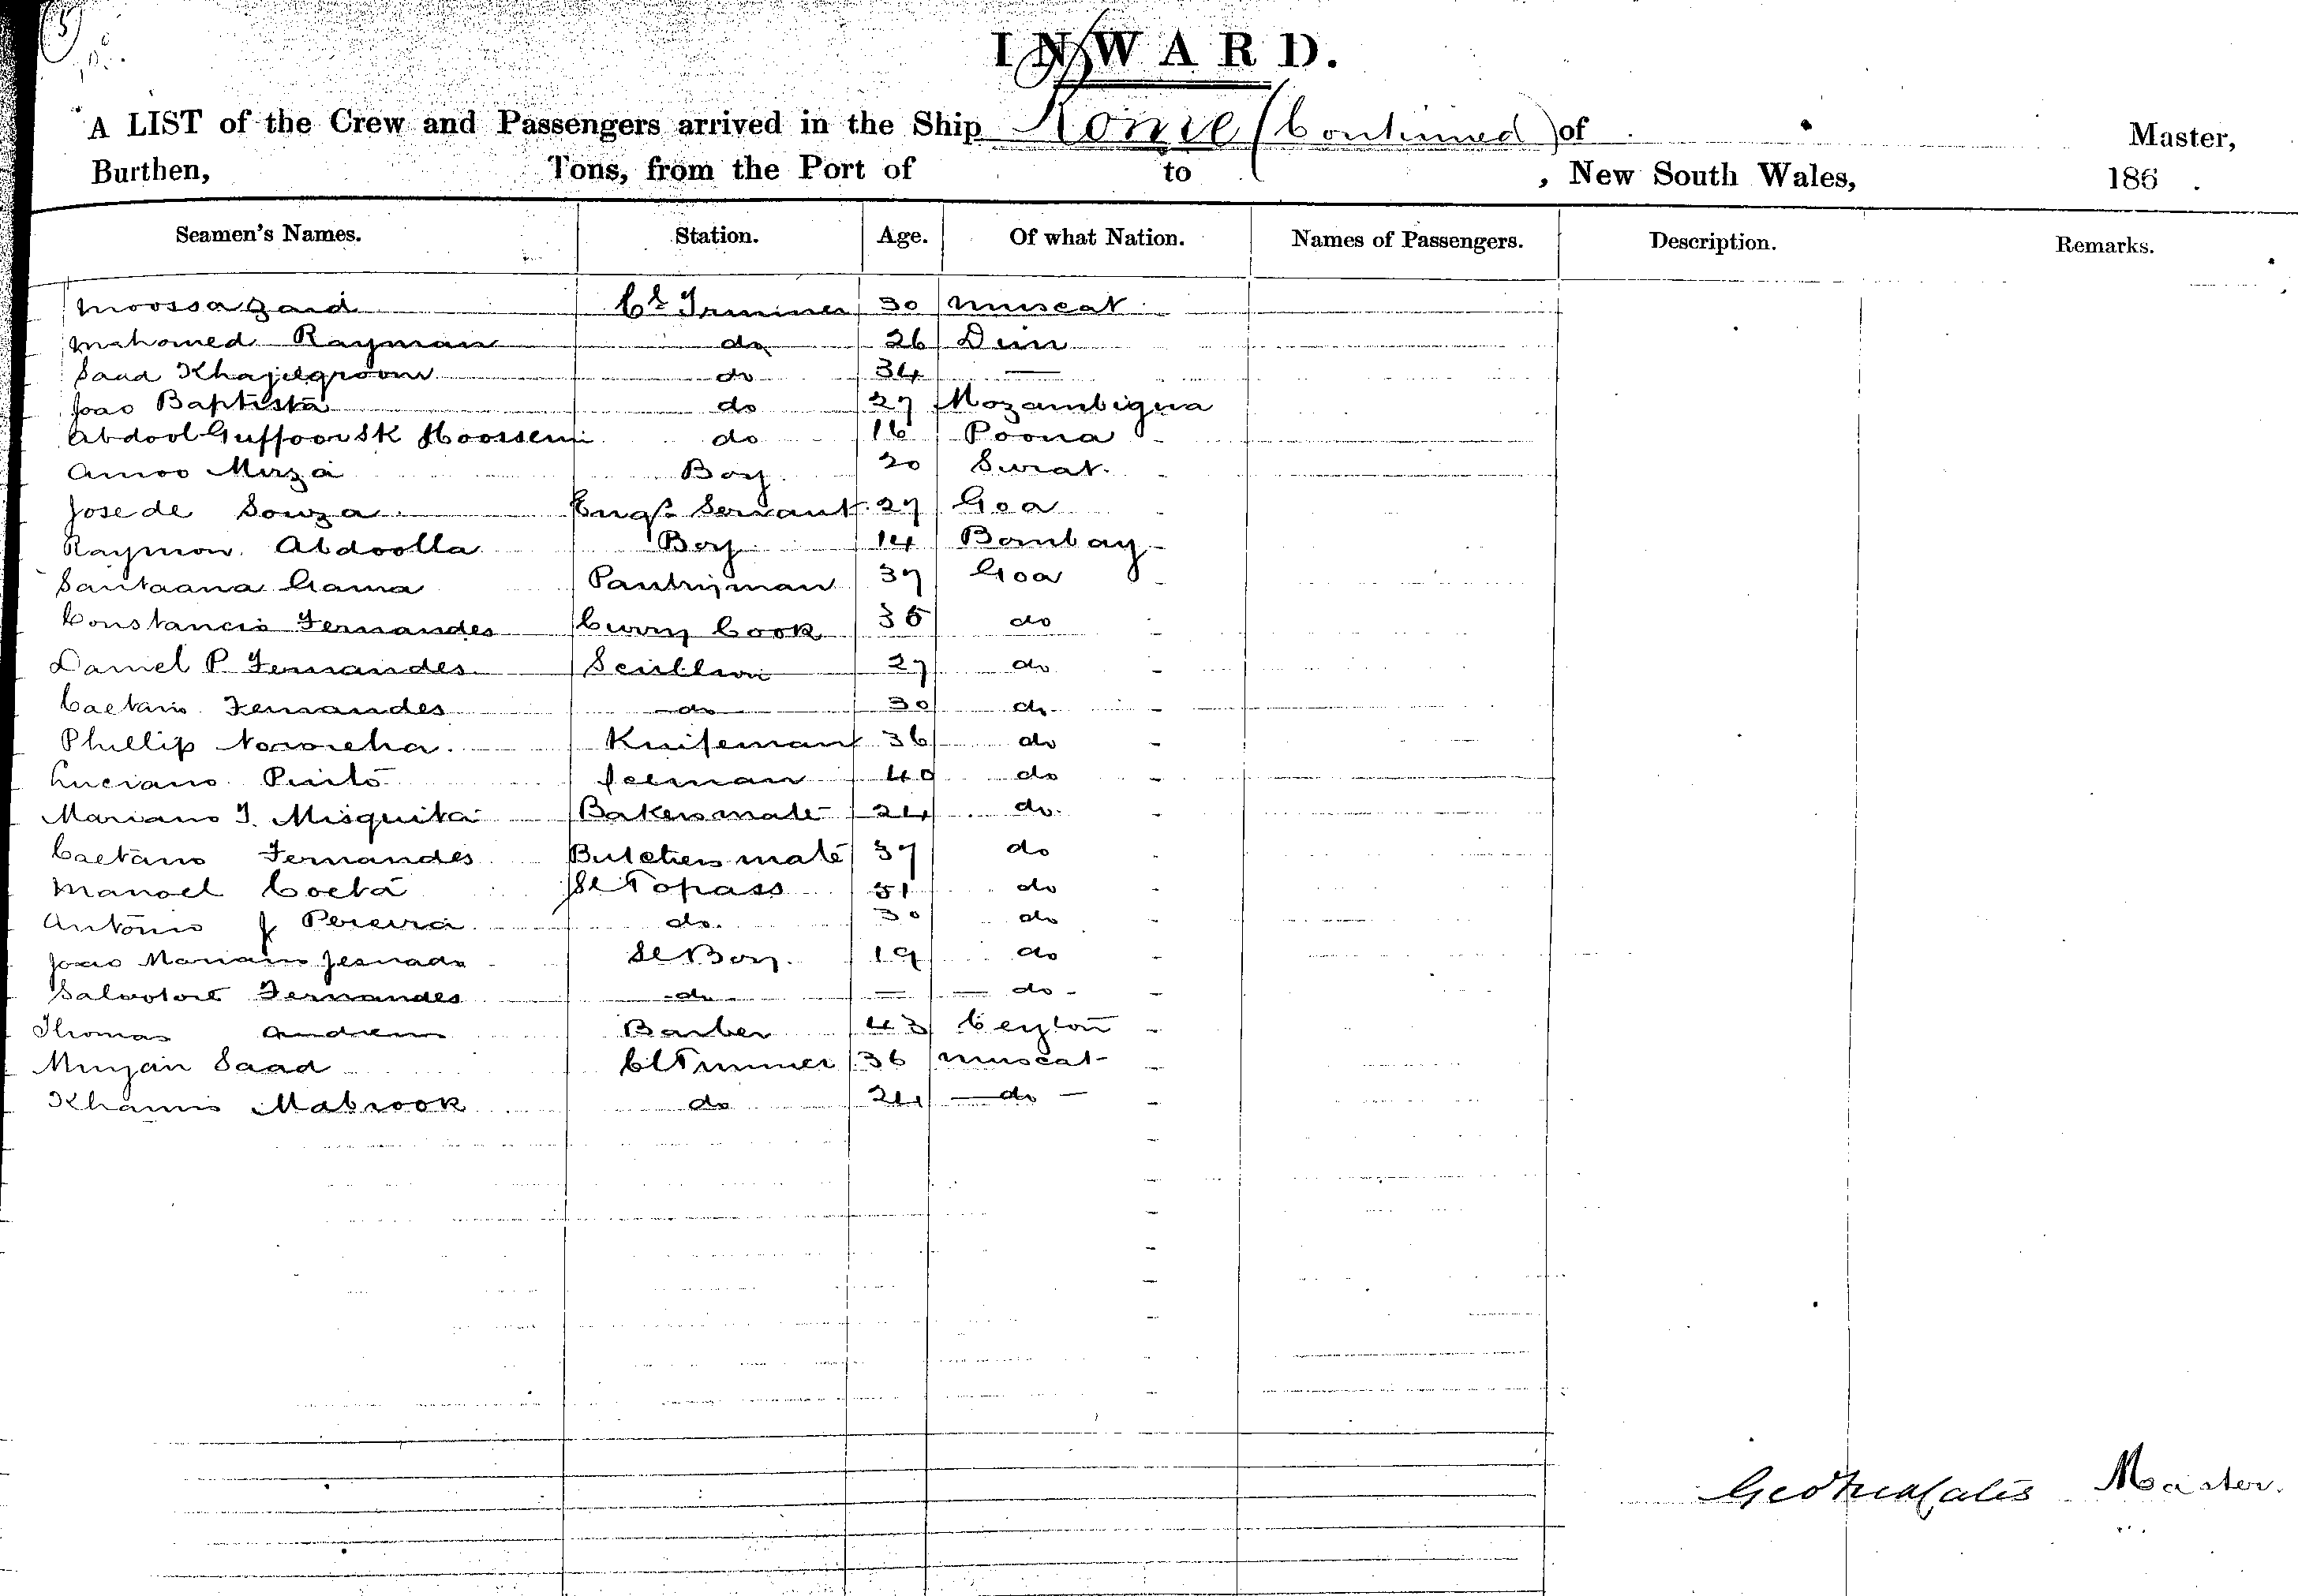 INWARD.
A LIST of the Crew and Passengers arrived in the Ship Rome (Continued) of Master,
Burthen, Tons, from the Port of to , New South Wales, 186 .
Seamen's Names. Station. Age. Of what Nation. Names of Passengers. Description. Remarks.
Moossa Zaid Cl Trimmer 30 Muscat
Mahomed Rayman do 26 Diu
Saad do 34 —
Joao Baptista do 27 Mozambiqua
Abdool Guffoor Sk Hoossein do 16 Poona
Amoo Mirza Boy 20 Surat.
Jose de Souza Engrs Servant 27 Goa
Raymon Abdoolla Boy 14 Bombay
Santaana Gama Pantryman 37 Goa
Constancio Fernandes Curry Cook 35 do
Daniel P. Fernandes Scullion 27 do
Caetano Fernandes do 30 do
Phillip Noronha Knifeman 36 do
Luciano Pinto Iceman 40 do
Mariano J. Misquita Bakers mate 24 do
Caetano Fernandes Butchers mate 37 do
Manoel Costa Sl Topass 51 do
Antonio J Pereira do. 30 do
Joao Mariano Sl Boy. 19 do
Salvatore Fernandes do — do
Thomas Andrew Barber 43 Ceylon
Murjan Saad Cl Trimmer 36 Muscat
Khamis Mabrook do 24 do
Master.